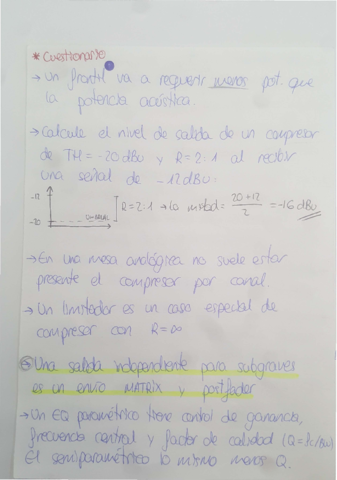 * Cuestionario
→ Un frontfil va a requerir menos pot. que
la potencia acústica.
→ Calcule el nivel de salida de un compresor
de TH = -20 dBu y R = 2:1 al recibir
una señal de -12 dBu:
-12
-20
UMBRAL
R = 2:1 → La mitad = 20+12 / 2 = -16 dBu
→ En una mesa analógica no suele estar
presente el compresor por canal.
→ Un limitador es un caso especial de
compresor con R = ∞
Una salida independiente para subgraves
es un envío MATRIX y postfader
→ Un EQ paramétrico tiene control de ganancia,
frecuencia central y factor de calidad (Q = fc/BW)
El semiparamétrico lo mismo menos Q.